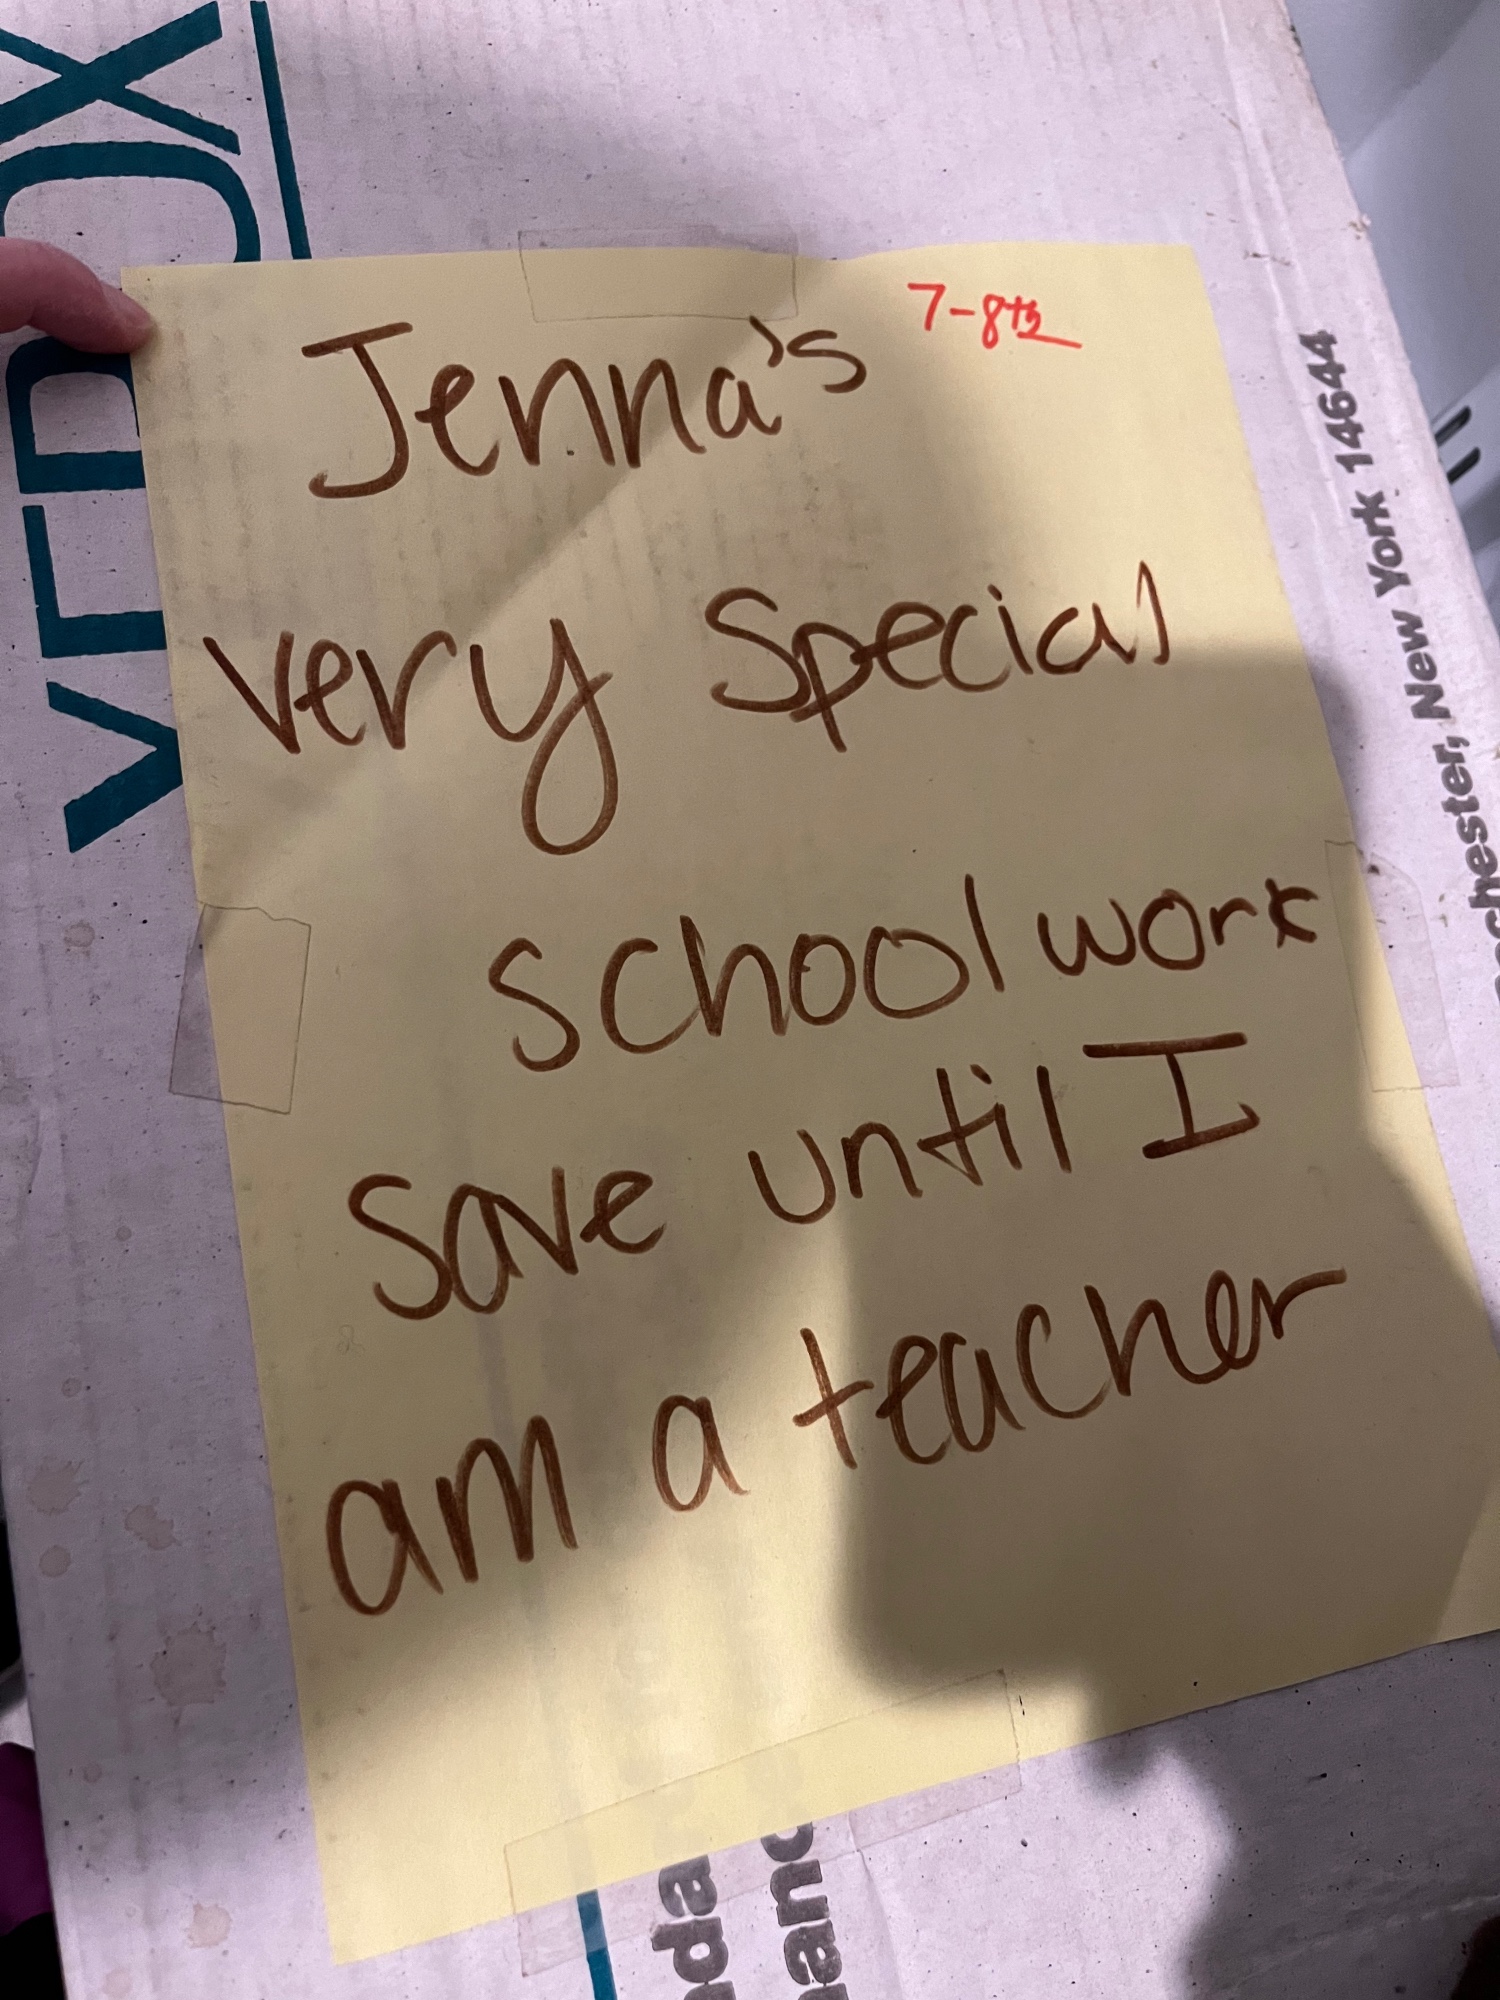 XEROX
Jenna's 7-8th
very special
school work
save until I
am a teacher
chester, New York 14644